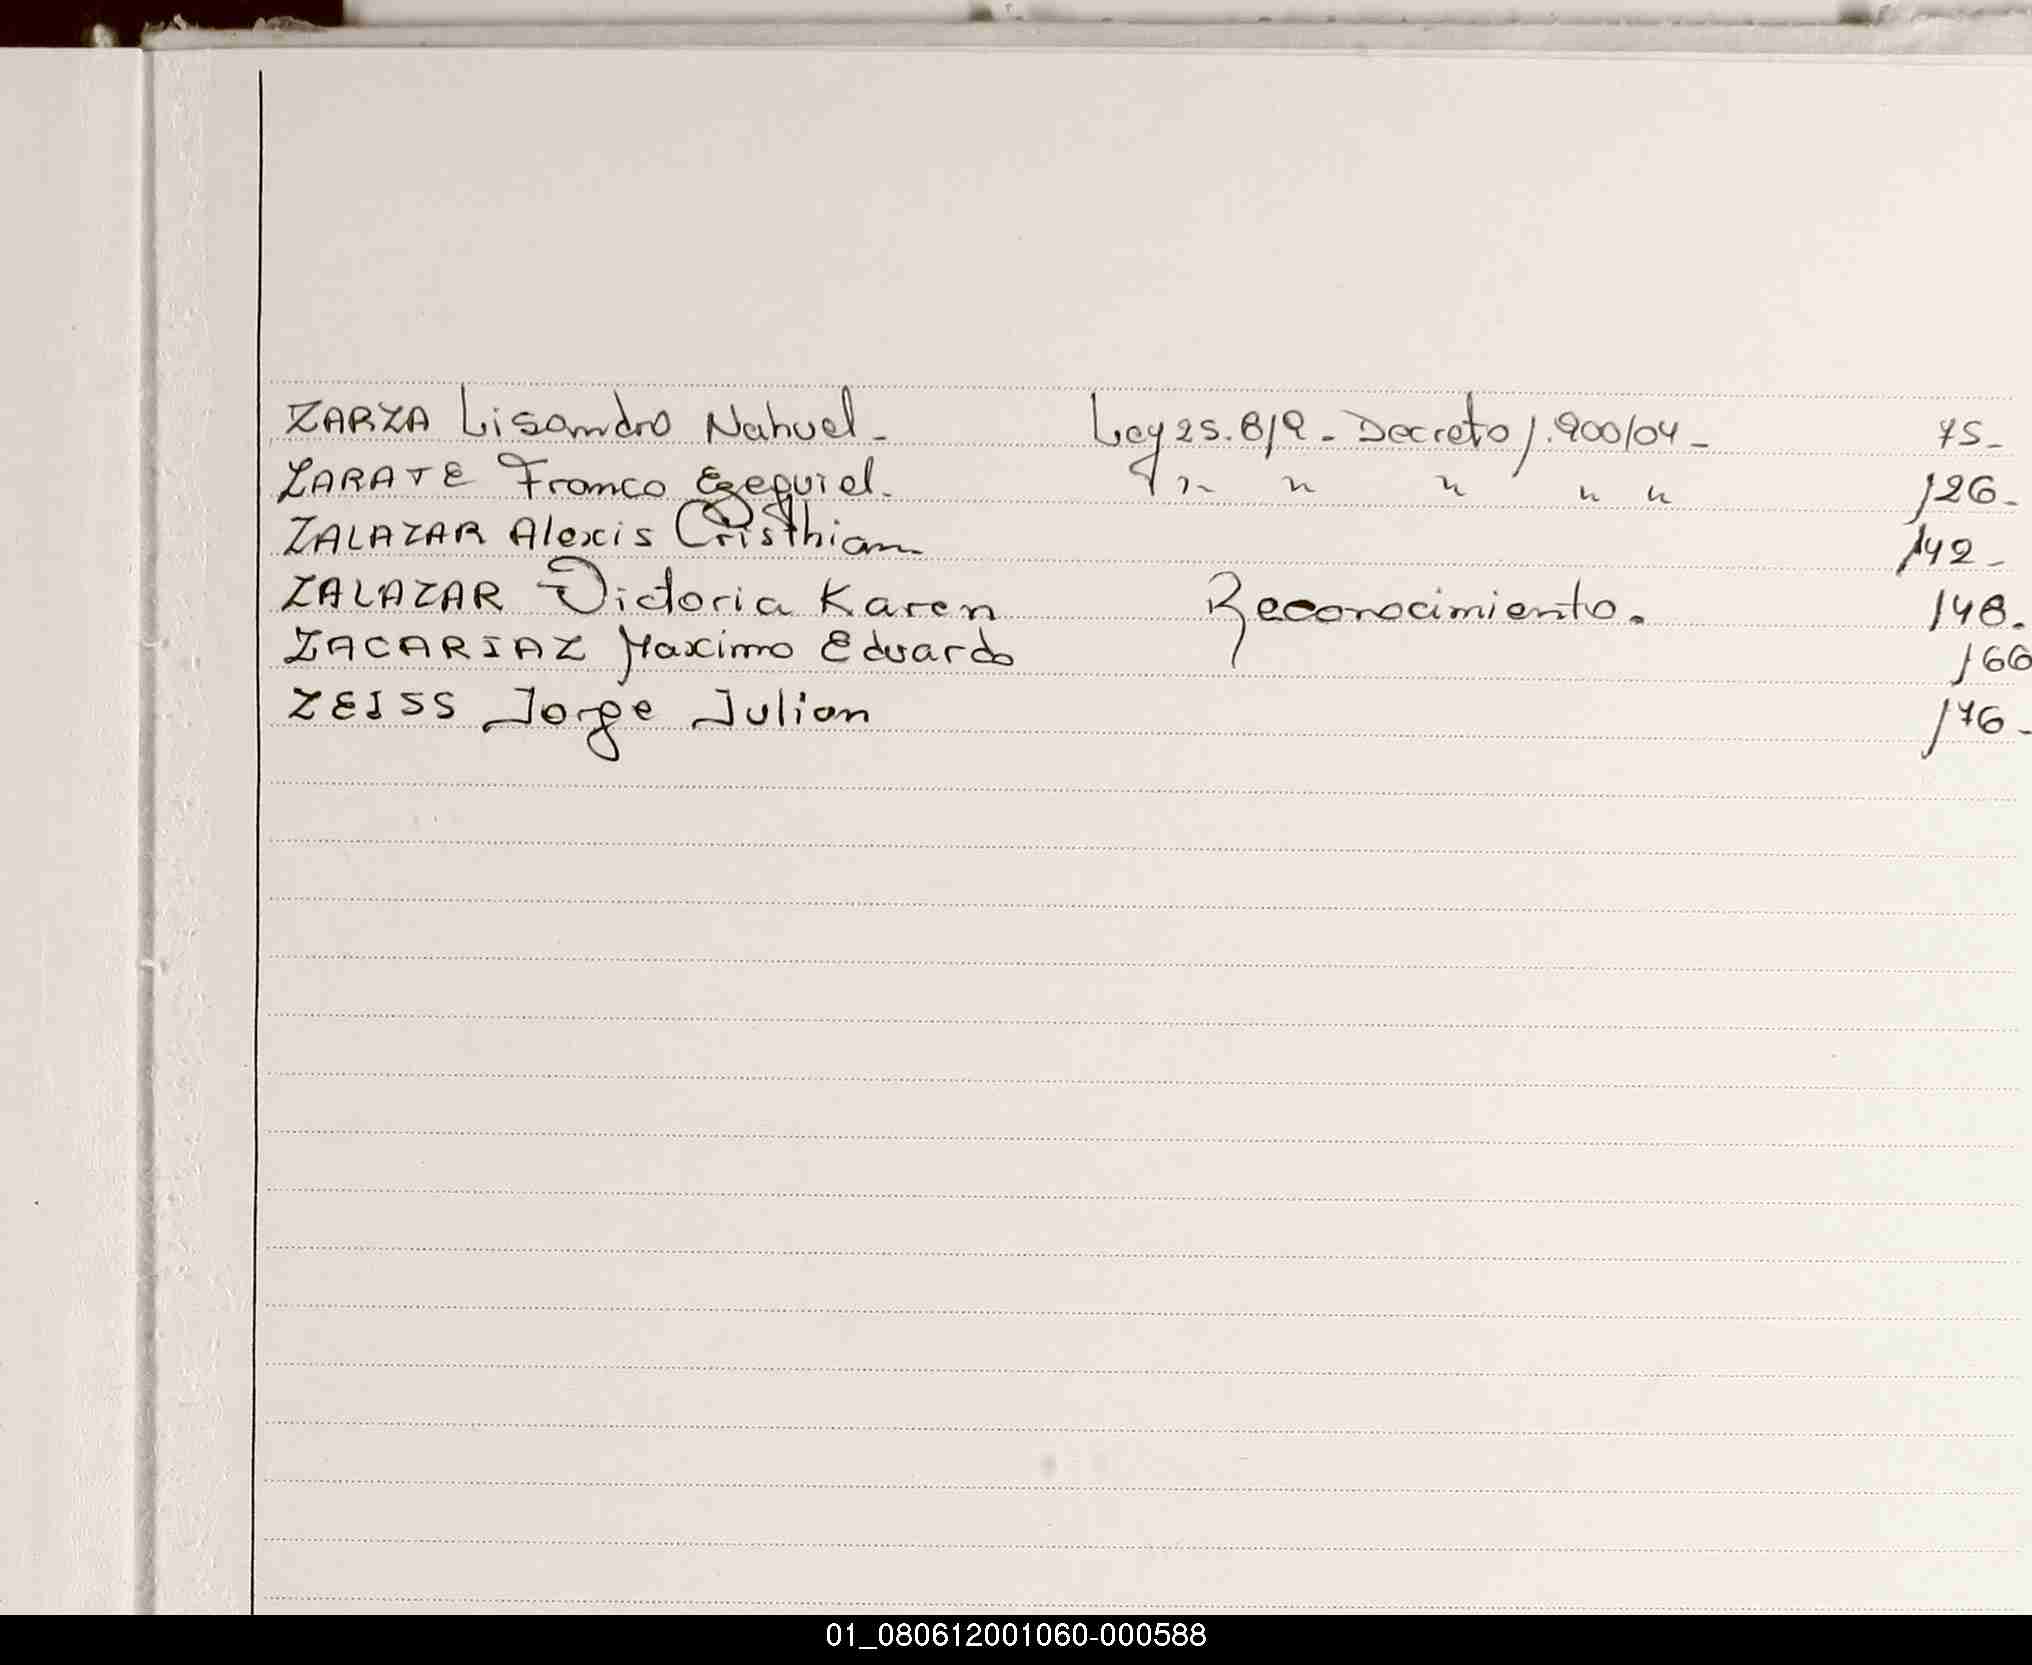 ZARZA Lisandro Nahuel. Ley 25.819. Decreto 1.900/04 - 75-
ZARATE Franco Ezequiel. " " " " " 126-
ZALAZAR Alexis Cristhian 142-
ZALAZAR Victoria Karen Reconocimiento. 148.
ZACARIAZ Maximo Eduardo 166
ZEISS Jorge Julian 176-
01_080612001060-000588